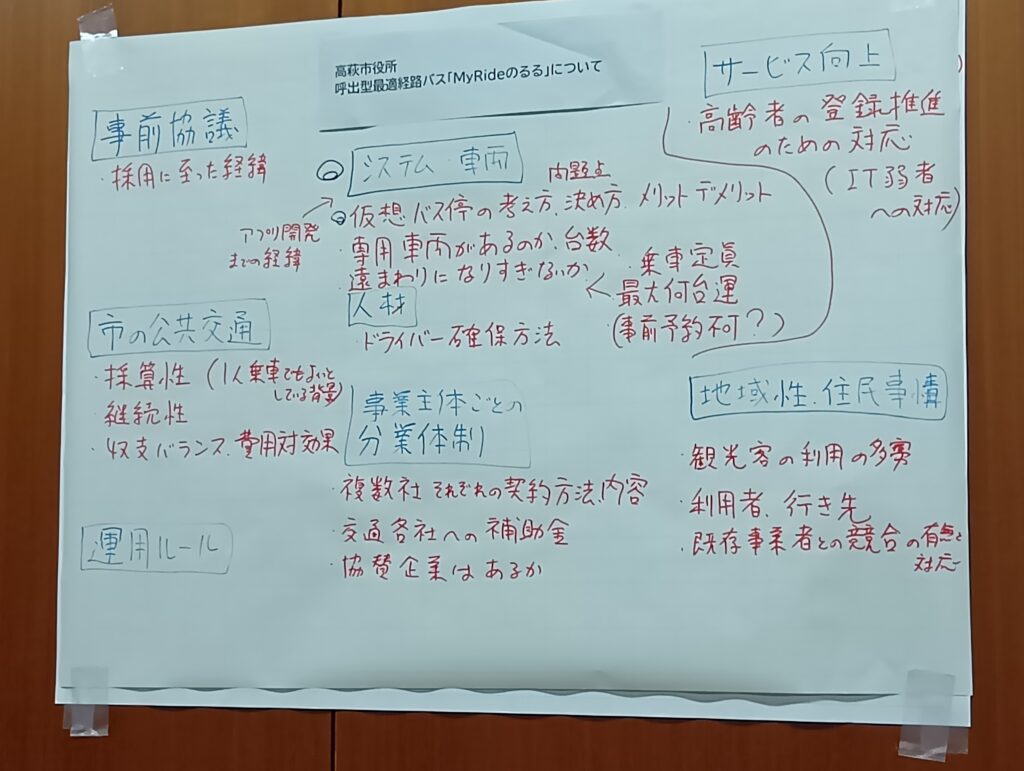 高萩市役所
呼出型最適経路バス「MyRideのるる」について
事前協議
・採用に至った経緯
システム・車両
問題点
・仮想バス停の考え方、決め方、メリットデメリット
アプリ開発
までの経緯
・専用車両があるのか、台数
遠まわりになりすぎないか
乗車定員
最大何台運
(事前予約不可?)
人材
・ドライバー確保方法
市の公共交通
・採算性(1人乗車でもよいと
している背景)
・継続性
・収支バランス、費用対効果
事業主体ごとの
分業体制
・複数社それぞれの契約方法、内容
・交通各社への補助金
・協賛企業はあるか
運用ルール
サービス向上
・高齢者の登録推進
のための対応
(IT弱者
への対応)
地域性・住民事情
・観光客の利用の多寡
・利用者、行き先
・既存事業者との競合の有無と
対応